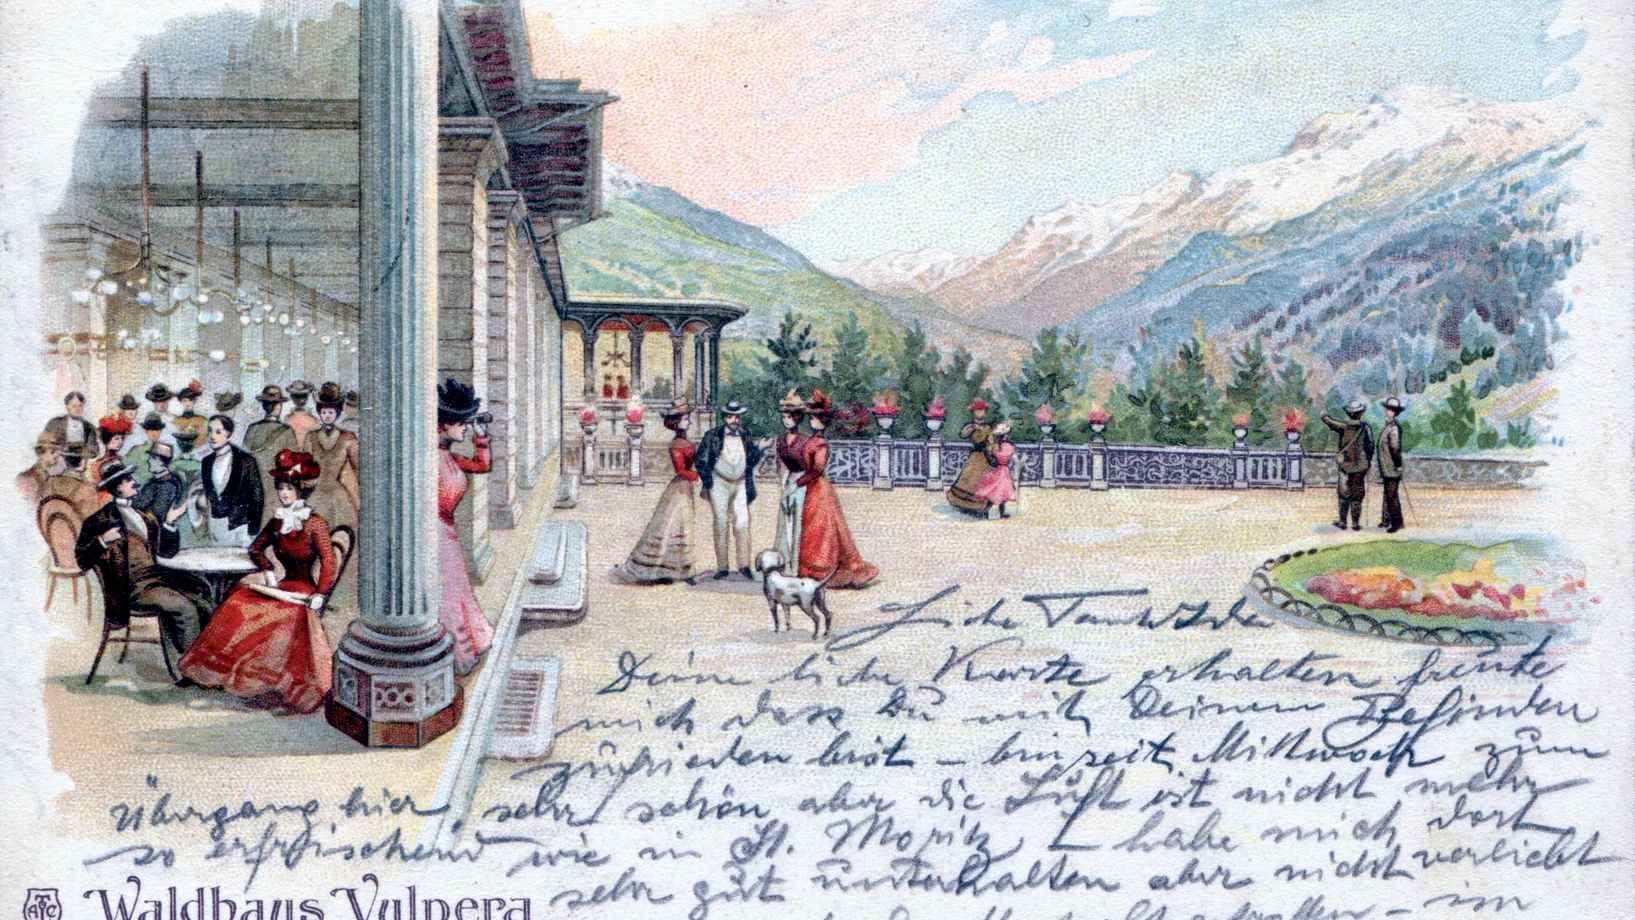 Liebe Tante Ida
Deine liebe Karte erhalten freute
mich dass Du mit Deinem Befinden
zufrieden bist – bin seit Mittwoch zum
Übergang hier, sehr schön aber die Luft ist nicht mehr
so erfrischend wie in St. Moritz – habe mich dort
sehr gut unterhalten aber nicht verliebt
– im
ATC
Waldhaus Vulpera